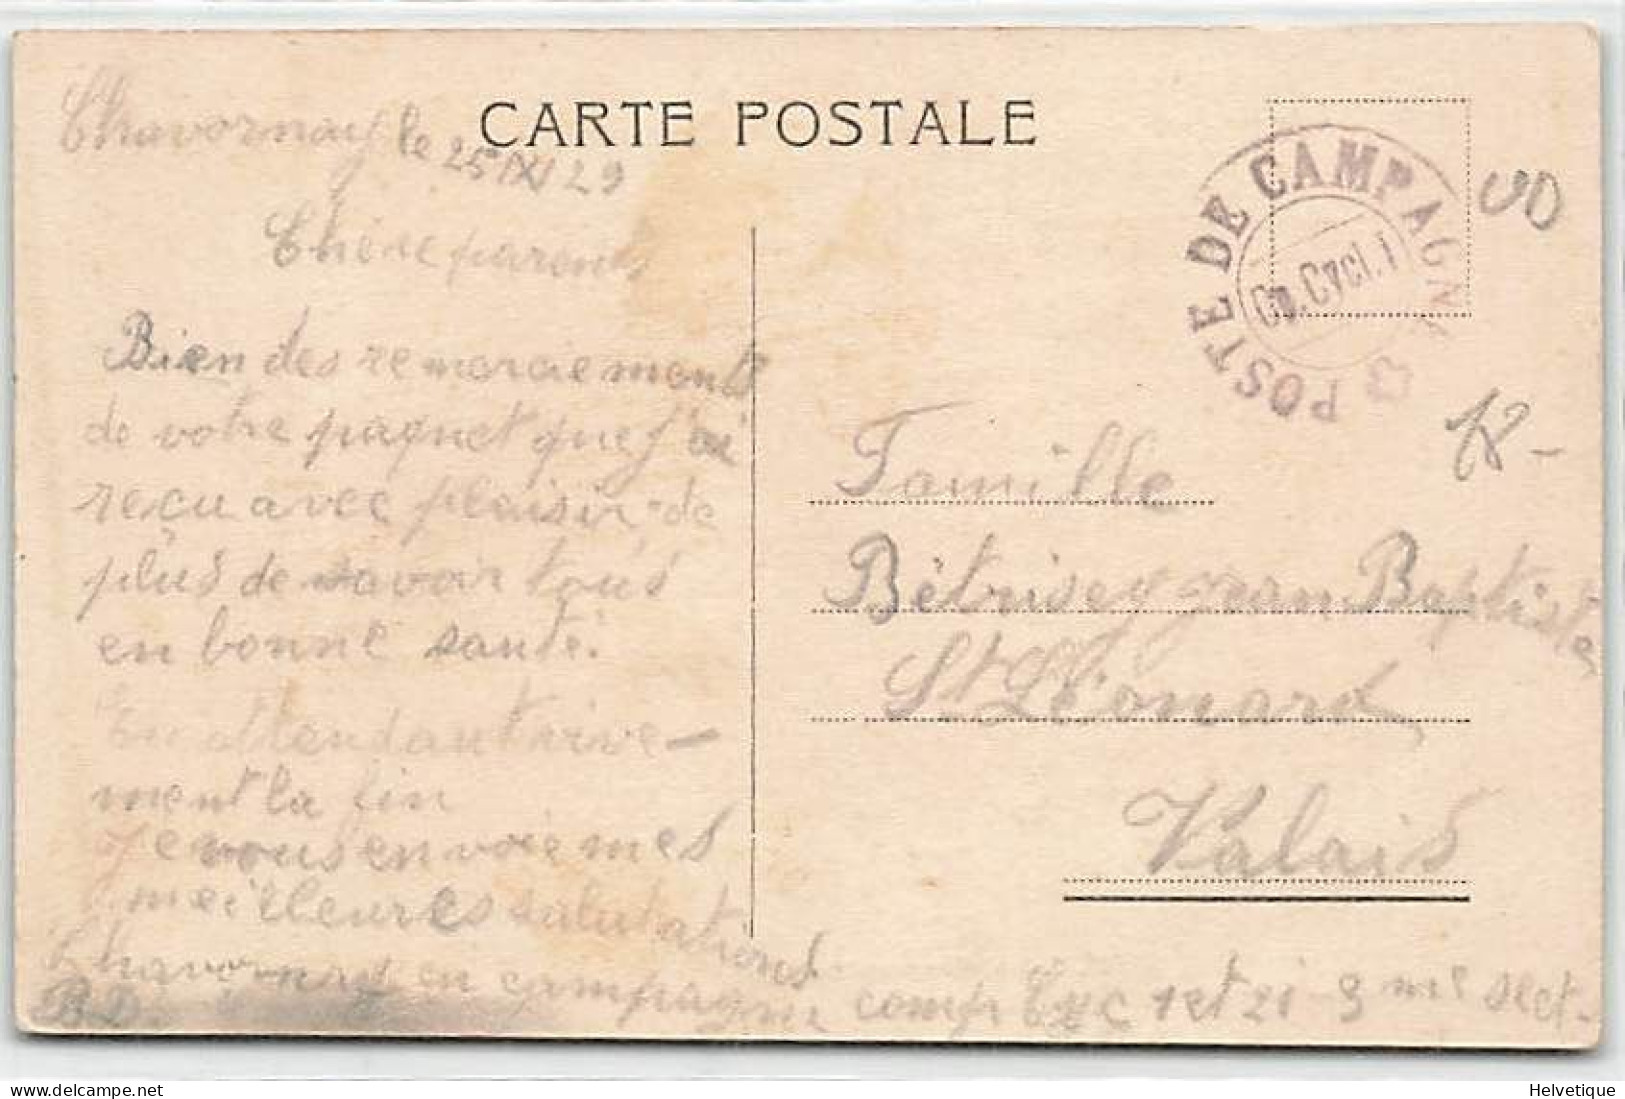 CARTE POSTALE
Chavornay le 25 IX 29
Chère parents
Bien des remerciements
de votre paquet que j'ai
reçu avec plaisir, de
plus de savoir tous
en bonne santé.
En attendant vive-
ment la fin
Je vous envoie mes
meilleures salutations
Chavornay en campagne comp Cyc 1 et 21 3me sect.
B.D.
POSTE DE CAMPAGNE
Cp. Cycl. 1
UD
18-
Famille
Bétrisey Jean Baptiste
St Léonard
Valais
Helvetique
delcampe.net